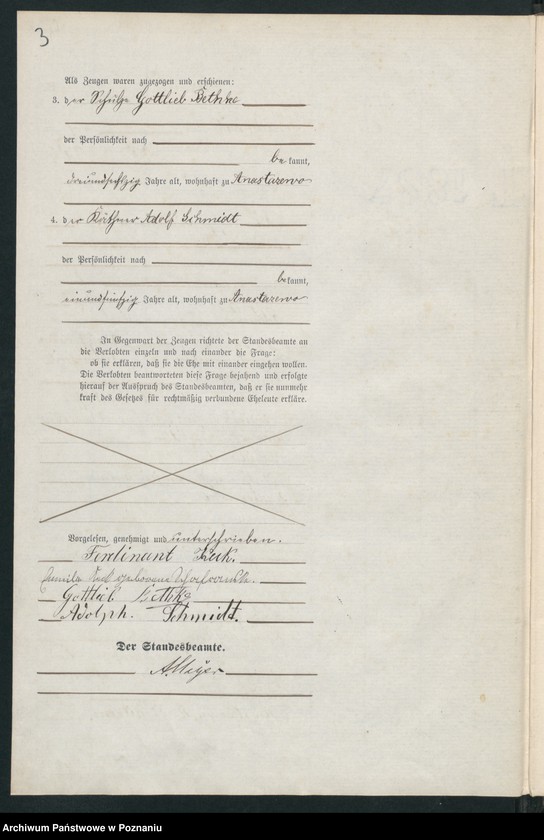 3
Als Zeugen waren zugezogen und erschienen:
3. der Schulze Gottlieb Bethke
der Persönlichkeit nach
bekannt,
dreiundsechszig Jahre alt, wohnhaft zu Anastazewo
4. der Käthner Adolf Schmidt
der Persönlichkeit nach
bekannt,
einundfünfzig Jahre alt, wohnhaft zu Anastazewo
In Gegenwart der Zeugen richtete der Standesbeamte an
die Verlobten einzeln und nach einander die Frage:
ob sie erklären, daß sie die Ehe mit einander eingehen wollen.
Die Verlobten beantworteten diese Frage bejahend und erfolgte
hierauf der Ausspruch des Standesbeamten, daß er sie nunmehr
kraft des Gesetzes für rechtmäßig verbundene Eheleute erkläre.
Vorgelesen, genehmigt und unterschrieben.
Ferdinant
geborene
Gottlieb Bethke
Adolph. Schmidt.
Der Standesbeamte.
A. Meyer
Archiwum Państwowe w Poznaniu